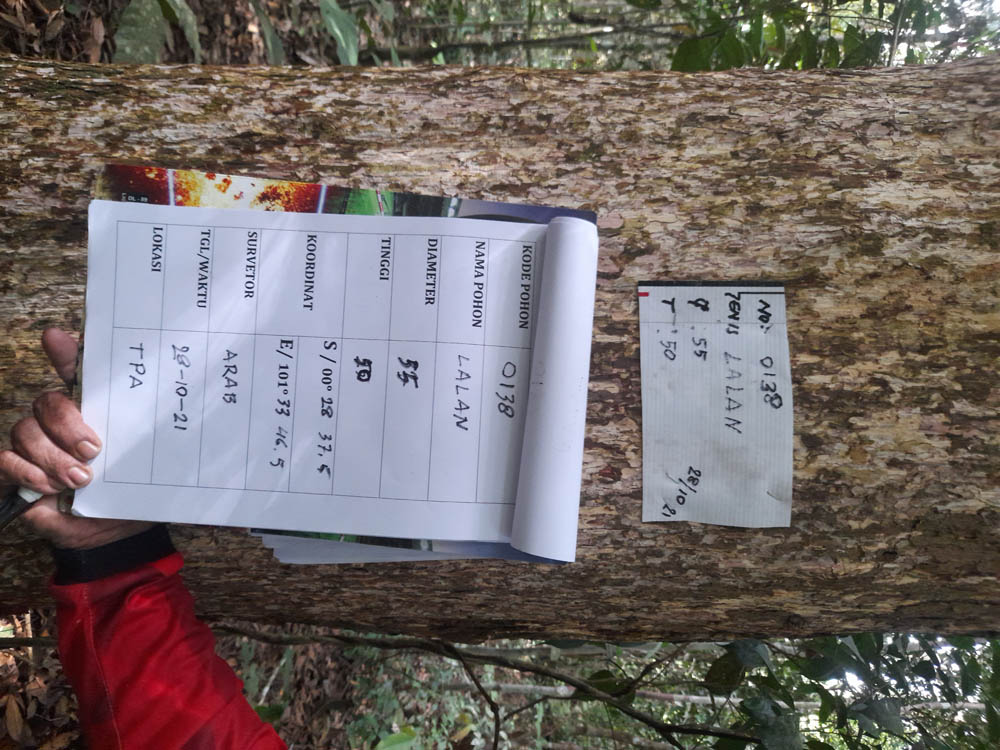 NO: 0138
JENIS LALAN
: 55
T : 50
28/10 21
KODE POHON 0138
NAMA POHON LALAN
DIAMETER 55
TINGGI 50
KOORDINAT
S / 00⁰ 28 37.5
E/ 101⁰ 33 46.5
SURVETOR ARAB
TGL/WAKTU 28-10-21
LOKASI TPA